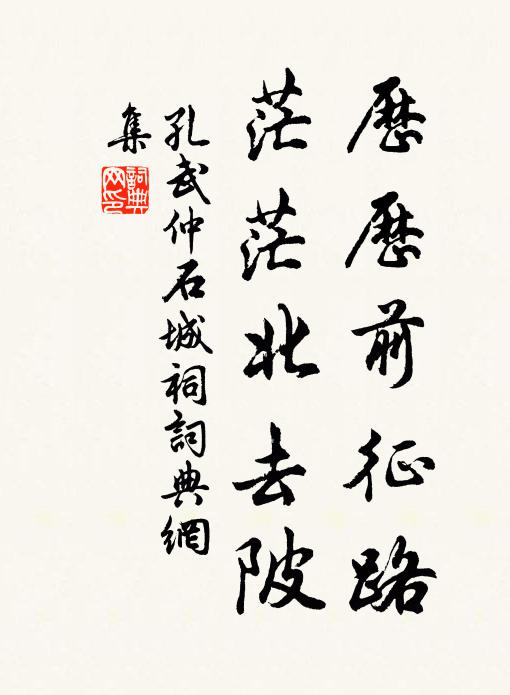 歷歷前征路
茫茫北去陂
孔武仲石城祠詞典網
集
詞典
网印